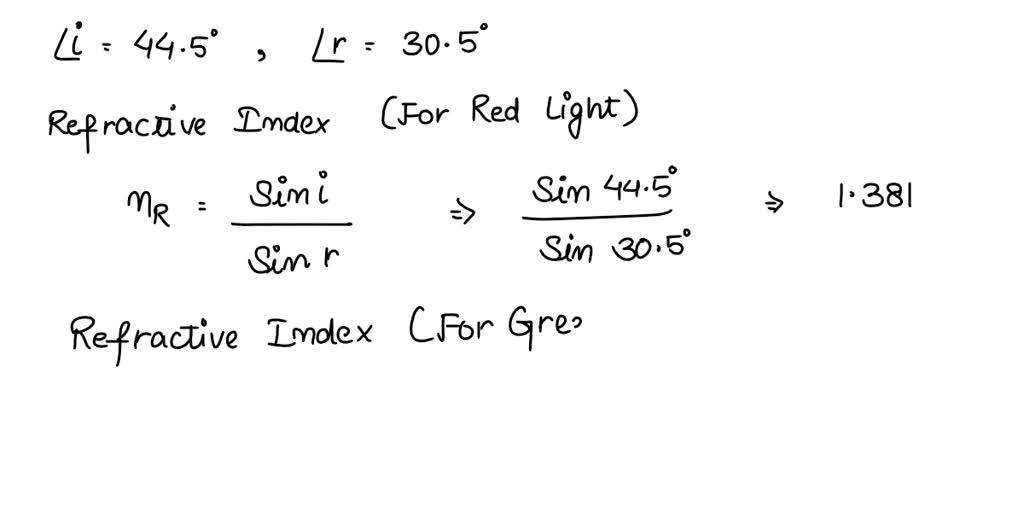 ∠i = 44.5° , ∠r = 30.5°
Refractive Index (For Red Light)
nR = Sin i / Sin r ⇒ Sin 44.5° / Sin 30.5° ⇒ 1.381
Refractive Index (For Gre